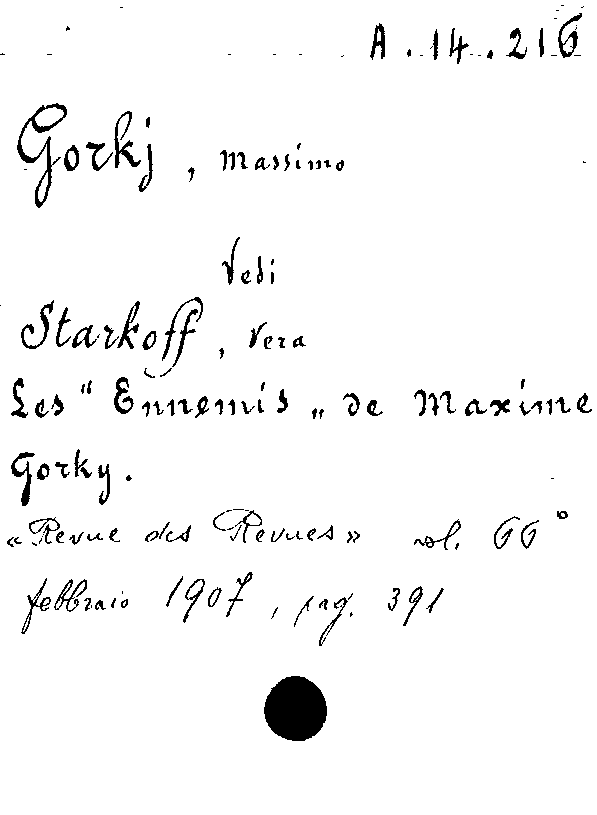 A.14.216
Gorkj, Massimo
Vedi
Starkoff, Vera
Les "Ennemis„ de Maxime
Gorky.
«Revue des Revues» vol. 66°
febbraio 1907, pag. 391